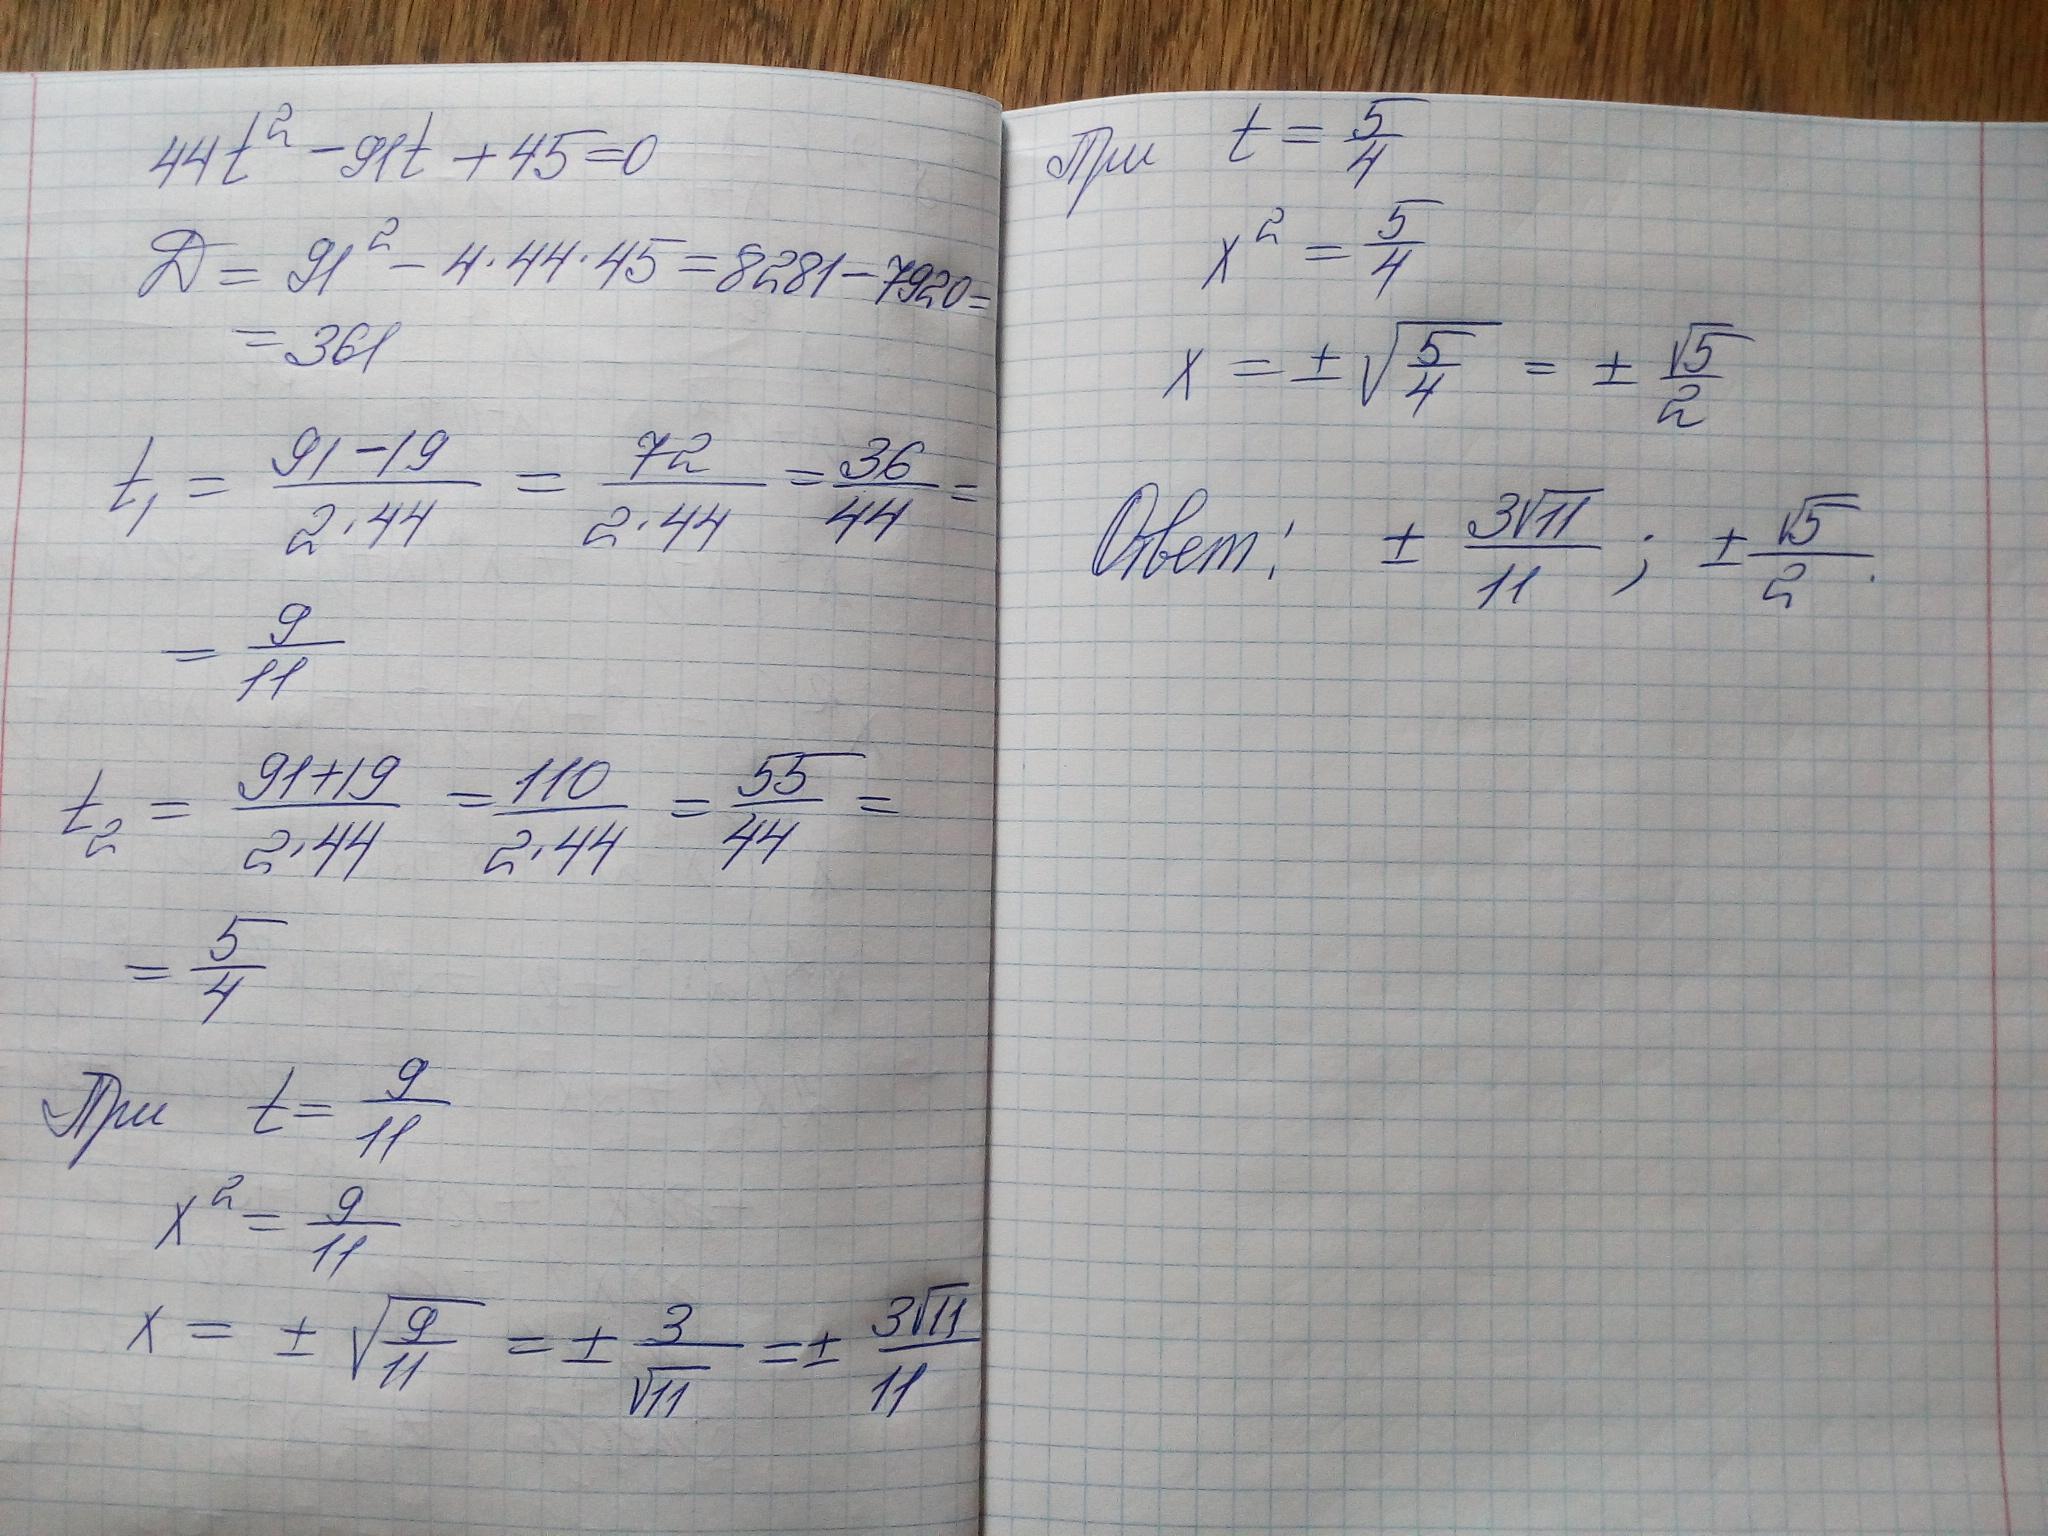 44t² - 91t + 45 = 0
Д = 91² - 4·44·45 = 8281 - 7920 =
= 361
t₁ = (91-19)/(2·44) = 72/(2·44) = 36/44 =
= 9/11
t₂ = (91+19)/(2·44) = 110/(2·44) = 55/44 =
= 5/4
При t = 9/11
x² = 9/11
x = ± √(9/11) = ± 3/√11 = ± 3√11/11
При t = 5/4
x² = 5/4
x = ± √(5/4) = ± √5/2
Ответ: ± 3√11/11 ; ± √5/2.